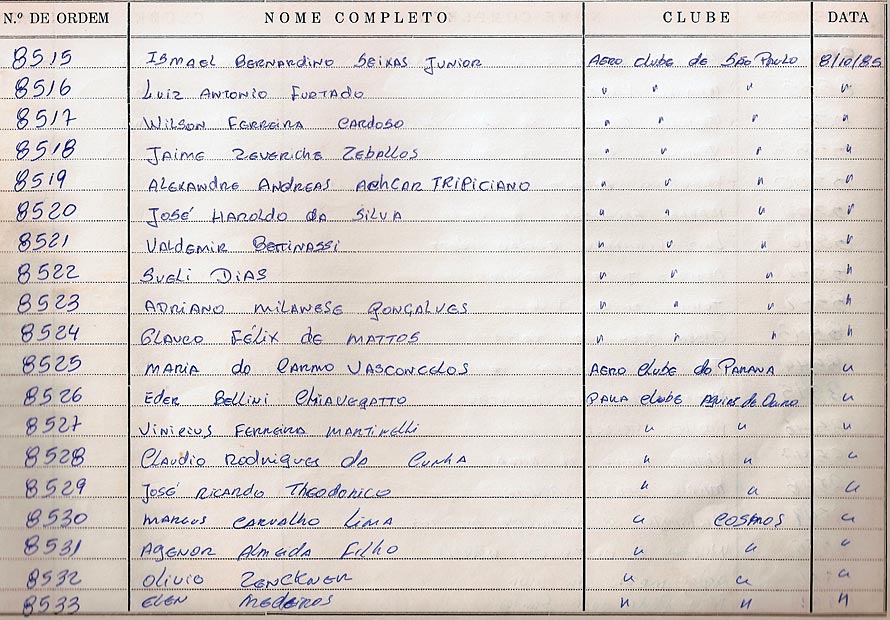 N.º DE ORDEM NOME COMPLETO CLUBE DATA
8515 Ismael Bernardino Seixas Junior Aero Clube de São Paulo 8/10/85
8516 Luiz Antonio Furtado " " " "
8517 Wilson Ferreira Cardoso " " " "
8518 Jaime Zeveriche Zeballos " " " "
8519 Alexandre Andreas Achcar Tripiciano " " " "
8520 José Haroldo da Silva " " " "
8521 Valdemir Bettinassi " " " "
8522 Sueli Dias " " " "
8523 Adriano Milanese Gonçalves " " " "
8524 Glauco Félix de Mattos " " " "
8525 Maria do Carmo Vasconcelos Aero Clube do Parana "
8526 Eder Bellini Chiavegatto Para Clube Aguias de Ouro "
8527 Vinicius Ferreira Martinelli " " "
8528 Claudio Rodrigues da Cunha " " "
8529 José Ricardo Theodorico " " "
8530 Marcus Carvalho Lima " Cosmos "
8531 Agenor Almada Filho " " "
8532 Olivio Zenckner " " "
8533 Elen Medeiros " " "